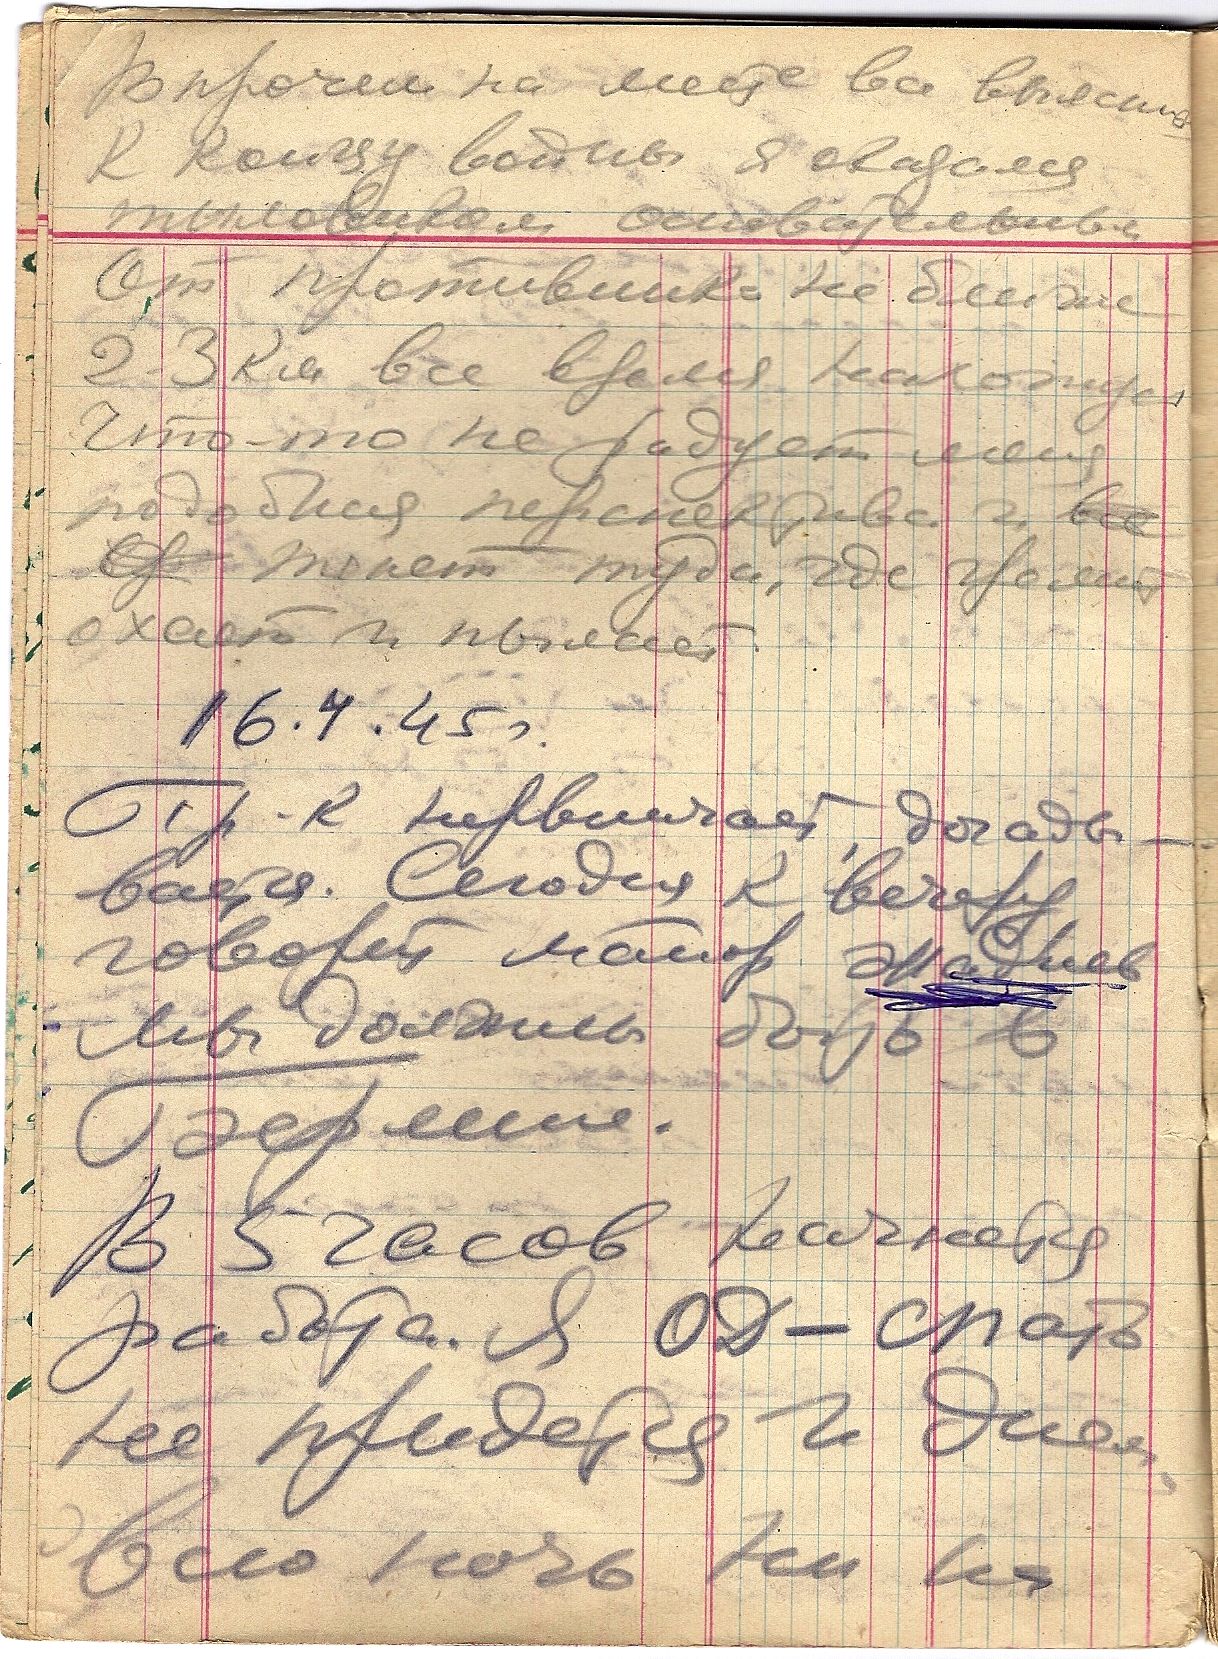 Впрочем на месте все выяснится
К концу войны я оказался
тыловиком основательным
От противника не ближе
2-3 км все время нахожусь
Что-то не радует меня
подобная перспектива и все
тянет туда, где гремит
охает и пылает.
16.4.45 г.
Пр-к нервничает, догады-
вается. Сегодня к вечеру
говорит майор
мы должны быть в
Берлине.
В 5 часов начнется
работа. Я ОД – спать
не придется и днем,
всю ночь ни на